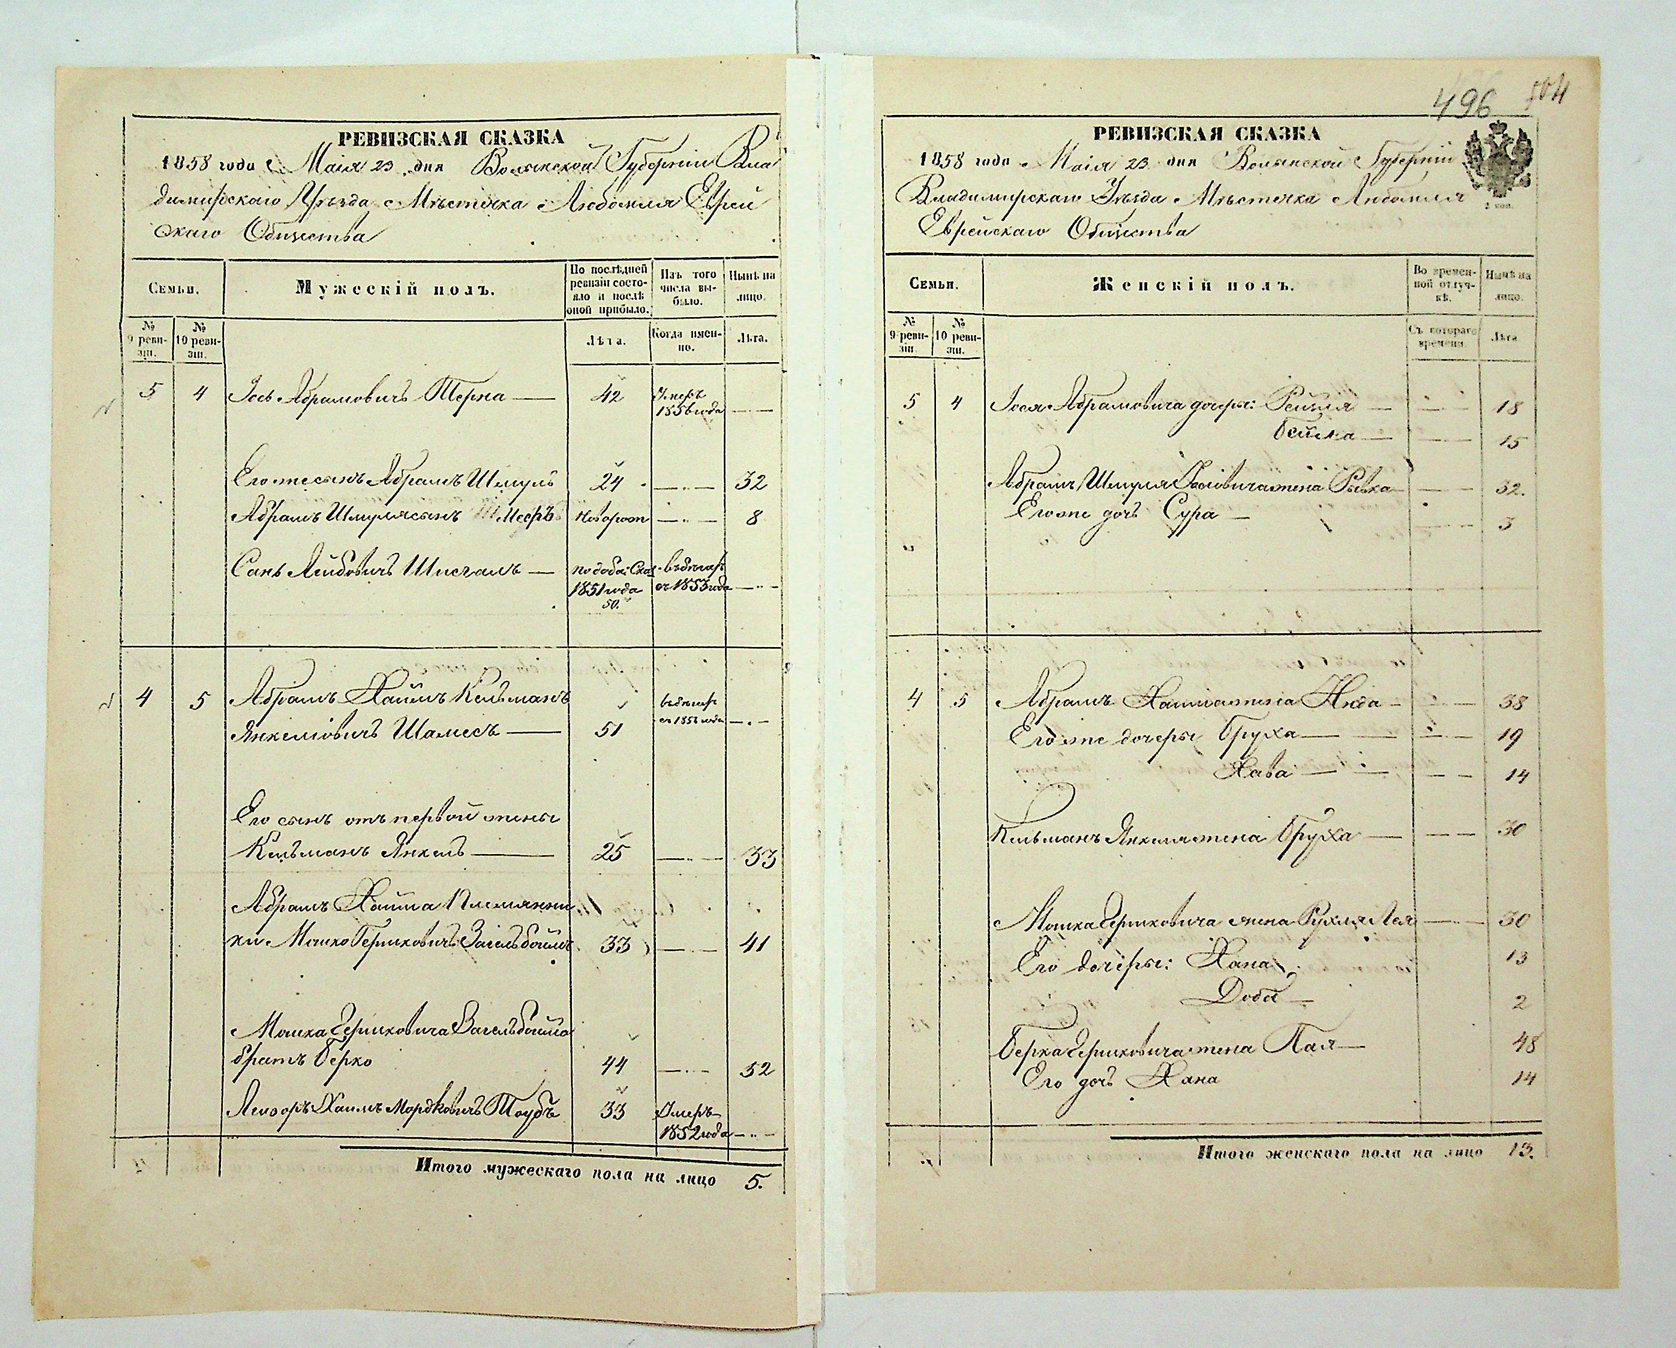 РЕВИЗСКАЯ СКАЗКА
1858 года Маія 23 дня Волынской Губерніи Вла
димирскаго Уѣзда Мѣстечка Любомля Еврей
скаго Общества
Семьи.
Мужескій полъ.
По послѣдней ревизіи состояло и послѣ оной прибыло.
Изъ того числа выбыло.
Нынѣ на лицо.
№ 9 ревизіи.
№ 10 ревизіи.
Лѣта.
Когда именно.
Лѣта.
5 4 Іось Абрамовичъ Терна 42 Умеръ 1856 года
Его же сынъ Абрамъ Шмуль 24 32
Абрамъ Шмуля сынъ Мееръ новорож 8
Лейбовичъ по доба: Сказ 1851 года 50. 1853 года
4 5 Абрамъ Хаимъ Кельманъ
Янкелiовичъ Шамесъ 51
Его сынъ отъ первой жены
Кельманъ Янкель 25 33
Абрамъ Хаима Племянни
ки Мошко Гершковичъ 33 41
Мошка Гершковича
братъ Берко 44 52
Лейзоръ Хаимъ Мордковичъ Таубъ 33 Умеръ 1852 года
Итого мужескаго пола на лицо 5.
496 504
РЕВИЗСКАЯ СКАЗКА
1858 года Маія 23 дня Волынской Губерніи
Владимирскаго Уѣзда Мѣстечка Любомля
Еврейскаго Общества
Семьи.
Женскій полъ.
Во временной отлучкѣ.
Нынѣ на лицо.
№ 9 ревизіи.
№ 10 ревизіи.
Съ котораго времени.
Лѣта
5 4 Іося Абрамовича дочеры: Рейзля 18
Бейла 15
Абрамъ Шмуля Іосiовича жена Рывка 32.
Его же дочь Сура 3
4 5 Абрамъ Хаима жена 38
Его же дочеры Бруха 19
Хава 14
Кельманъ Янкеля жена Бруха 30
Мошка Гершковича жена Рухля Лея 30
Его дочеры: Хана 13
Доба 2
Берка Гершковича жена Пая 48
Его дочь Хана 14
Итого женскаго пола на лицо 13.